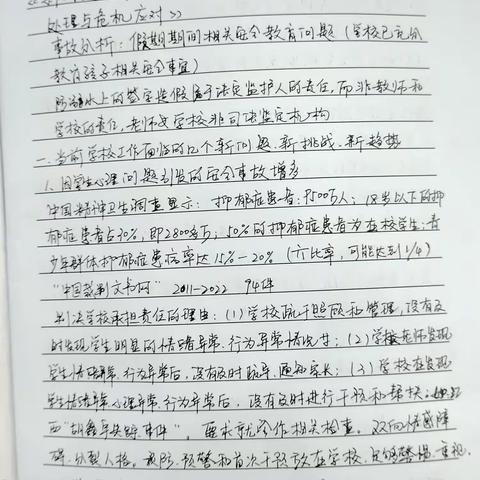 处理与危机应对》
事故分析:假期期间相关安全教育问题(学校已充分
教育孩子相关安全事宜)
防溺水上的签字造假属于法定监护人的责任,而非教师和
学校的责任,老师或学校非司法鉴定机构
一、当前学校工作面临的12个新问题、新挑战、新趋势
1、因学生心理问题引发的安全事故增多
中国精神卫生调查显示:抑郁症患者:9500万人;18岁以下的抑
郁症患者占30%,即2800多万;50%的抑郁症患者为在校学生;青
少年群体抑郁症患病率达15%-20%(占比率,可能达到1/4)
"中国裁判文书网" 2011-2022 94件
判决学校承担责任的理由:(1)学校疏于照顾和管理,没有及
时发现学生明显的情绪异常、行为异常情况;(2)学校老师发现
学生情绪异常、行为异常后,没有及时疏导、通知家长;(3)学校在发现
学生情绪异常、心理异常、行为异常后,没有及时进行干预和帮扶;如江
西"胡鑫宇失踪事件",要求就 作相关检查。双向情感障
碍、分裂人格。预防、预警和首次干预放在学校,足够警惕、重视。